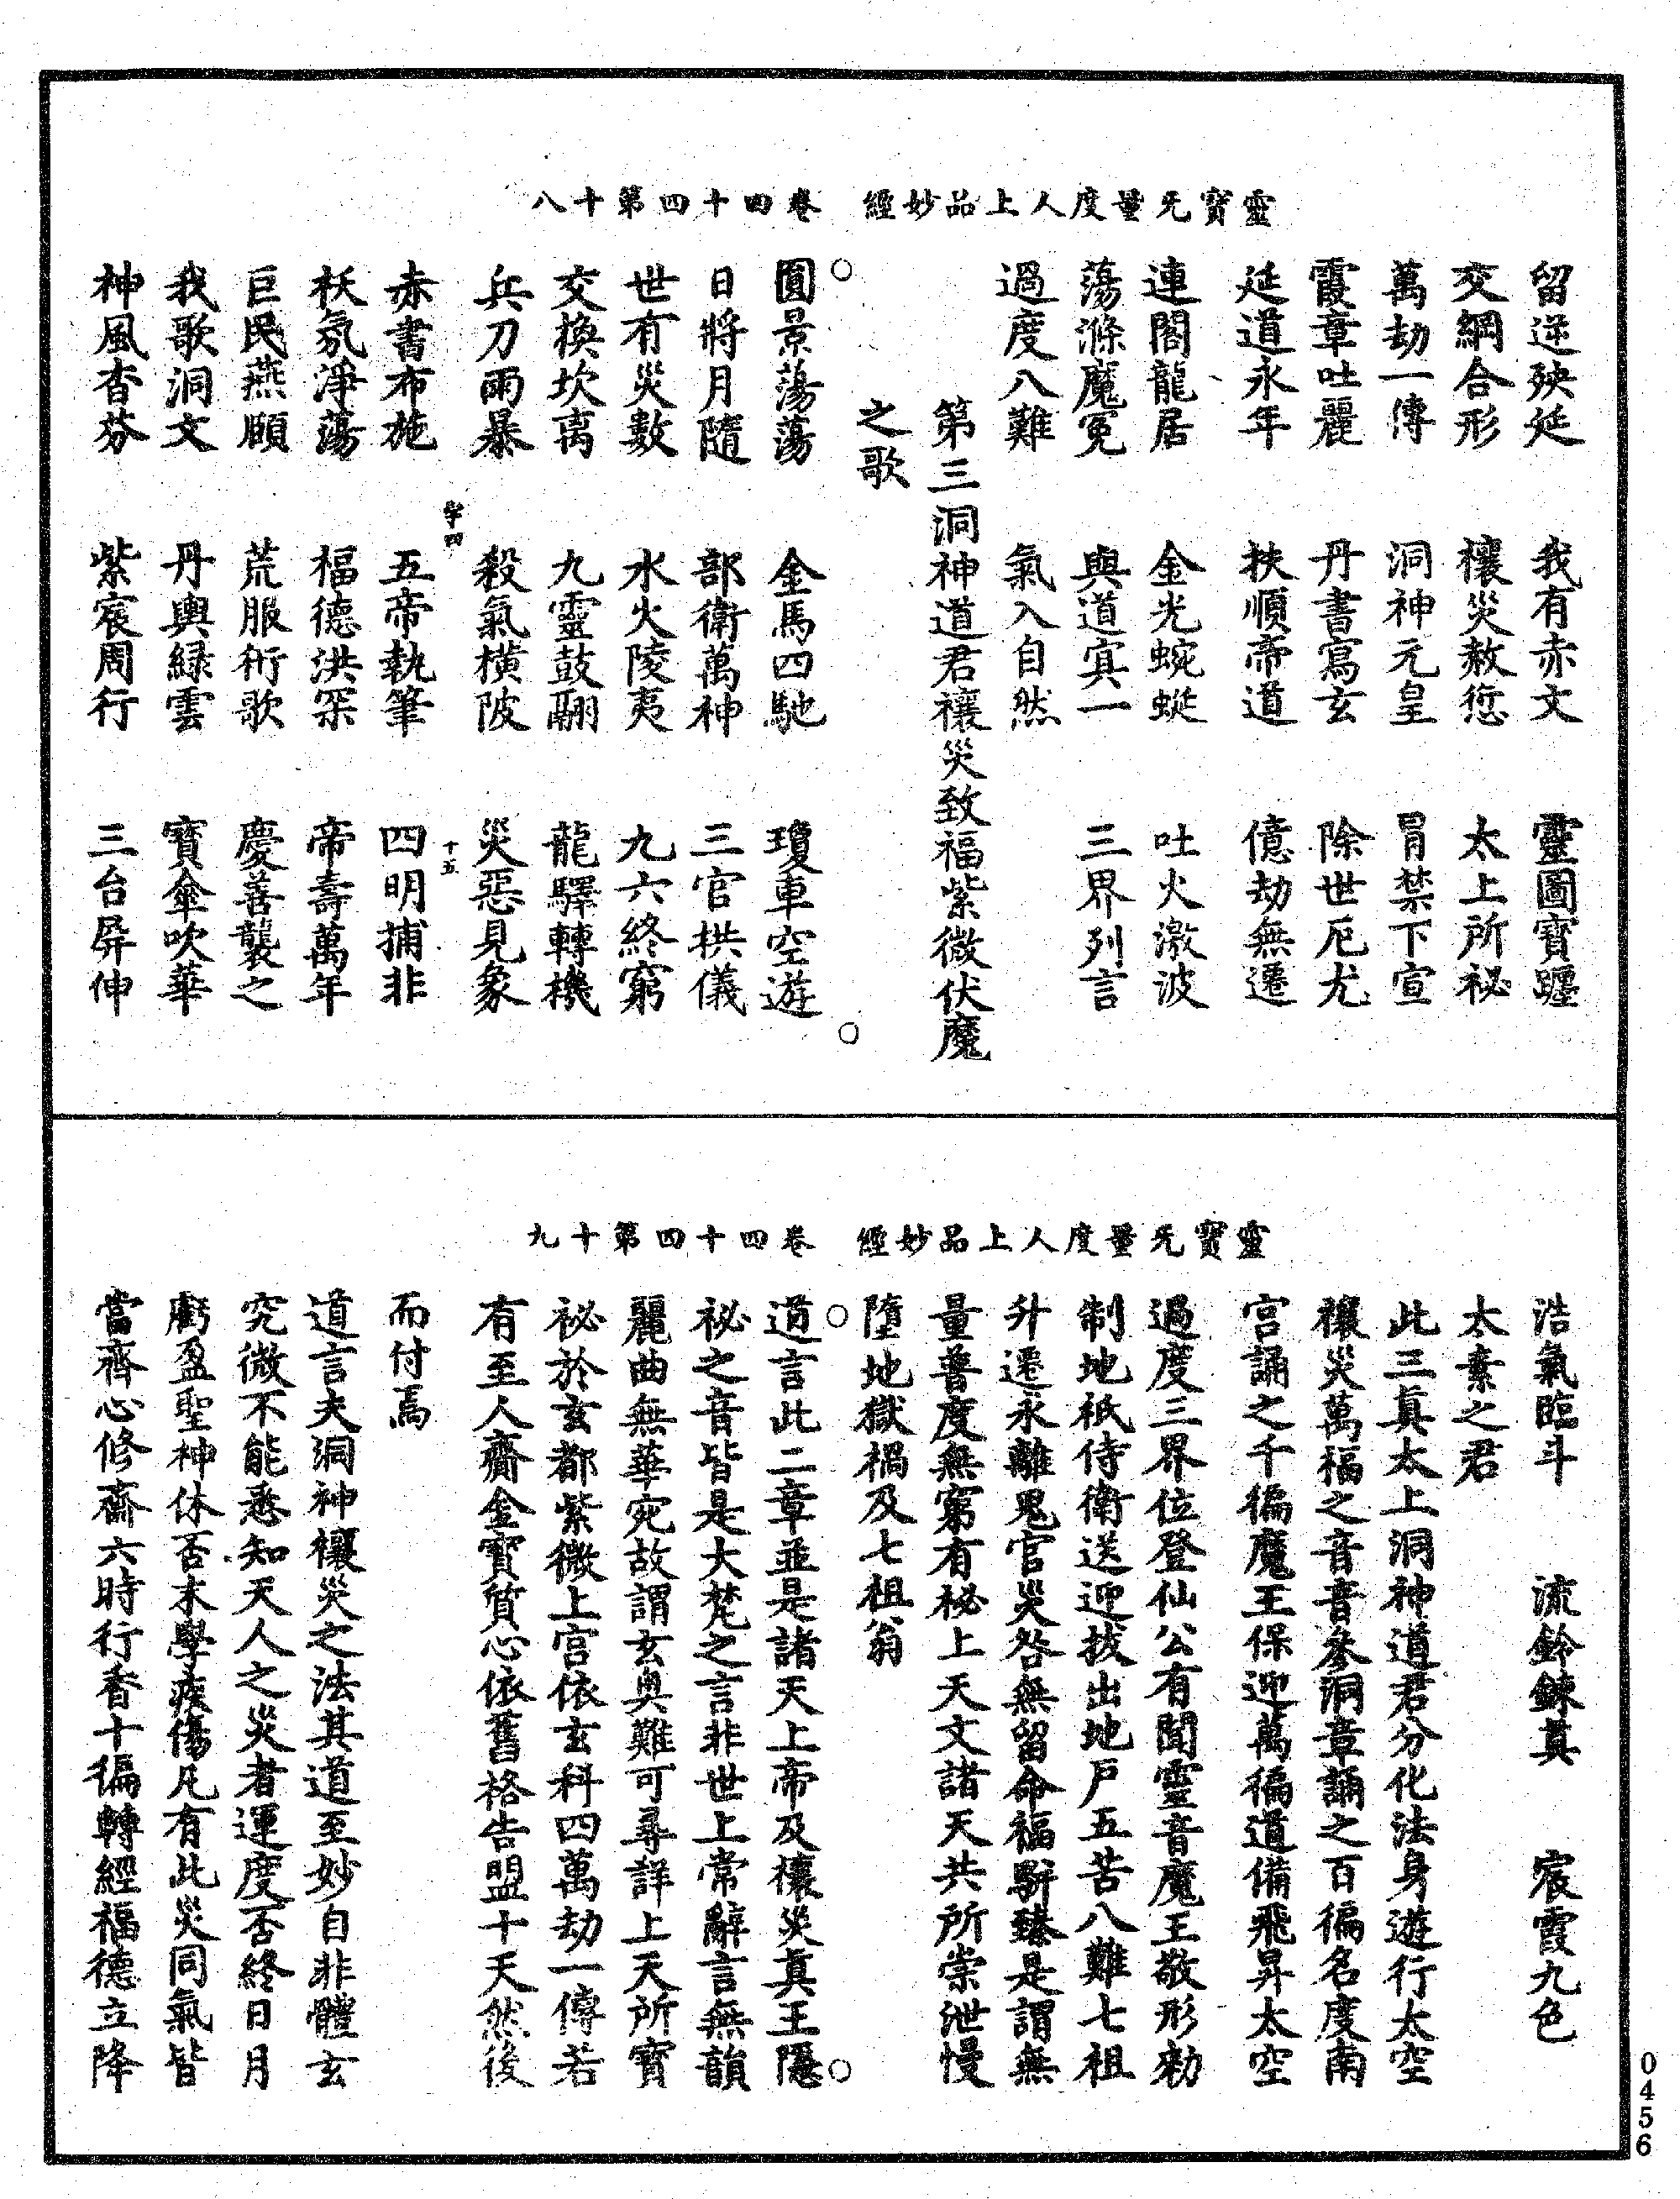 靈寶无量度人上品妙經　卷四十四第十八
留逆殃延　我有赤文　靈圖寶躔
交綱合形　禳災赦愆　太上所祕
萬劫一傳　洞神元皇　冐禁下宣
霞章吐麗　丹書寫玄　除世厄尤
延道永年　扶順帝道　億劫無遷
連閣龍居　金光蜿蜒　吐火激波
蕩滌魔冤　與道寘一　三界列言
過度八難　氣入自然
第三洞神道君禳災致福紫微伏魔
之歌
圓景蕩蕩　金馬四馳　瓊車空遊
日將月隨　部衛萬神　三官拱儀
世有災數　水火陵夷　九六終窮
交換坎离　九靈鼓翮　龍驛轉機
兵刀雨暴　殺氣橫陂　災惡見象
字四　十五
赤書布施　五帝執筆　四明捕非
祅氛淨蕩　福德洪深　帝壽萬年
巨民燕頤　荒服衎歌　慶善襲之
我歌洞文　丹輿緑雲　寶傘吹華
神風杳芬　紫宸周行　三台屏伸
靈寶无量度人上品妙經　卷四十四第十九
浩氣臨斗　流鈴鍊真　宸霞九色
太素之君
此三真太上洞神道君分化法身遊行太空
禳災萬福之音音參洞章誦之百徧名度南
宮誦之千徧魔王保迎萬徧道備飛昇太空
過度三界位登仙公有聞靈音魔王敬形勑
制地祇侍衛送迎拔出地戶五苦八難七祖
升遷永離鬼官災咎無留命福駢臻是謂無
量普度無窮有祕上天文諸天共所崇泄慢
墮地獄禍及七祖翁
道言此二章並是諸天上帝及禳災真王隱
祕之音皆是大梵之言非世上常辭言無韻
麗曲無華宛故謂玄奧難可尋詳上天所寶
祕於玄都紫微上宮依玄科四萬劫一傳若
有至人齎金寶質心依舊格告盟十天然後
而付焉
道言夫洞神禳災之法其道至妙自非體玄
究微不能悉知天人之災者運度否終日月
虧盈聖神休否末學疾傷凡有此災同氣皆
當齊心修齋六時行香十徧轉經福德立降
0456